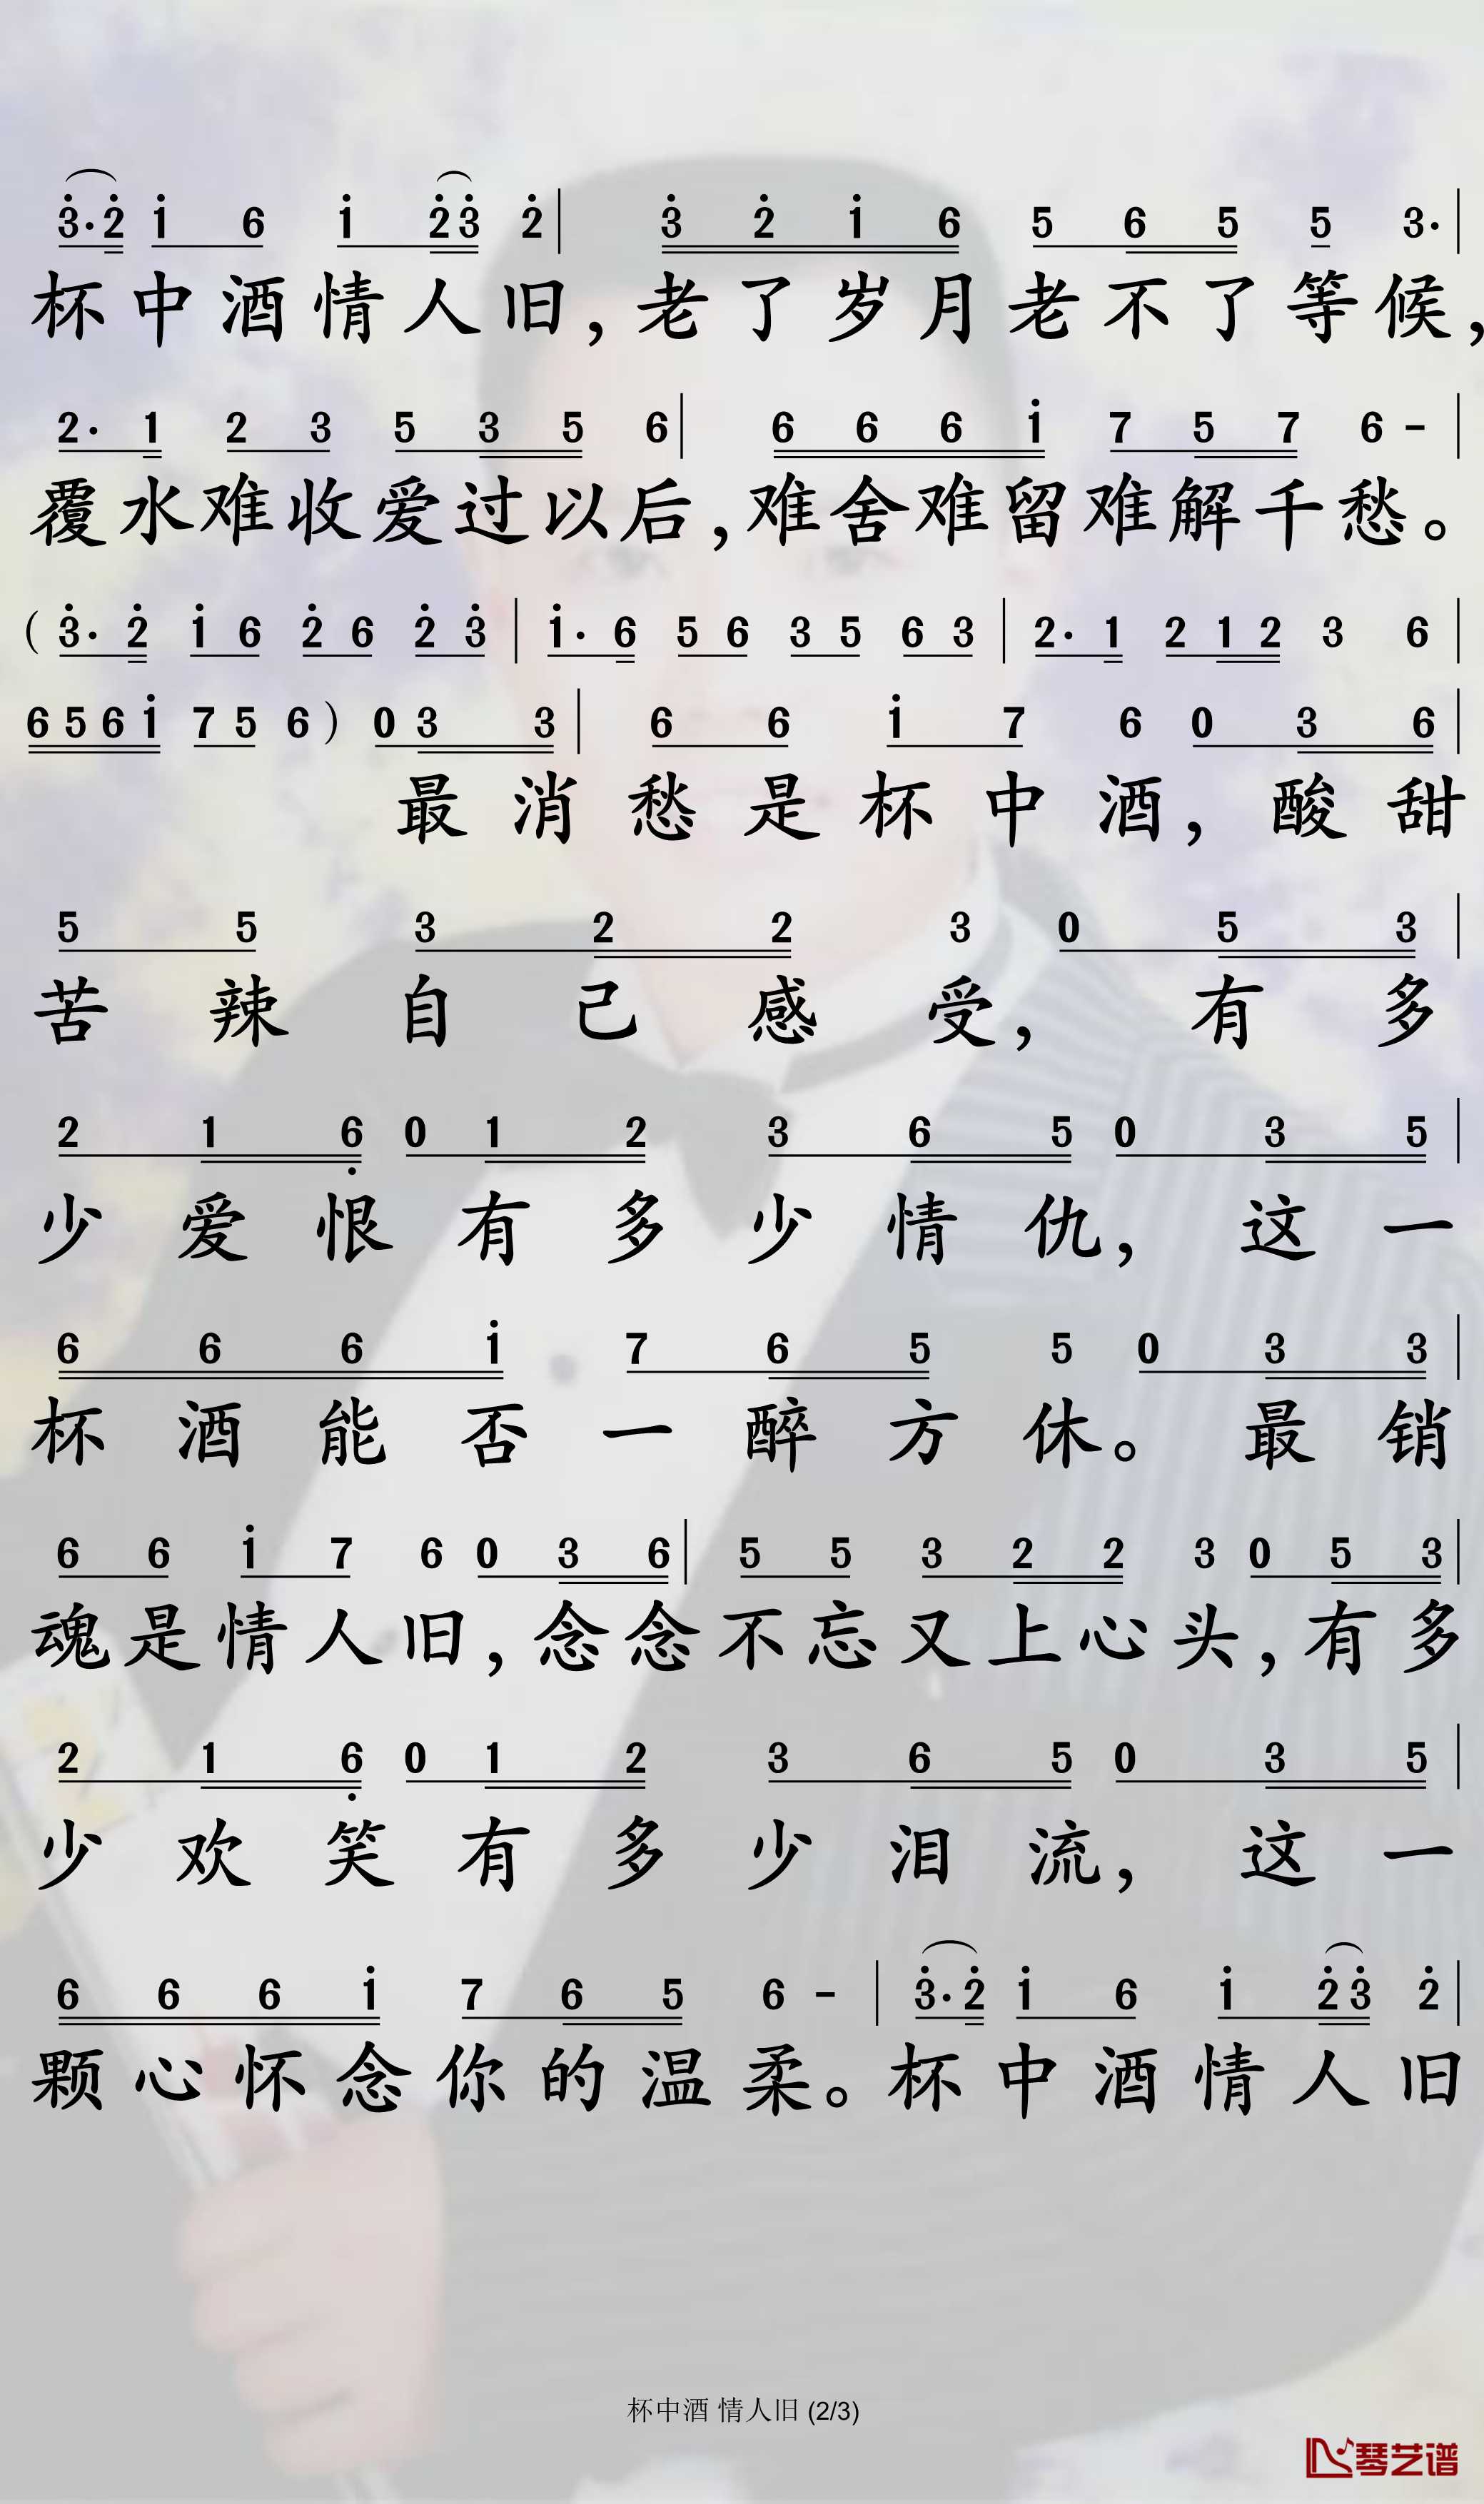 3·2 1 6 1 23 2 | 3 2 1 6 5 6 5 5 3· |
杯中酒情人旧，老了岁月老不了等候，
2· 1 2 3 5 3 5 6 | 6 6 6 1 7 5 7 6 - |
覆水难收爱过以后，难舍难留难解千愁。
( 3· 2 1 6 2 6 2 3 | 1· 6 5 6 3 5 6 3 | 2· 1 2 1 2 3 6 |
6 5 6 1 7 5 6 ) 0 3 3 | 6 6 1 7 6 0 3 6 |
最消愁是杯中酒，酸甜
5 5 3 2 2 3 0 5 3 |
苦辣自己感受，有多
2 1 6 0 1 2 3 6 5 0 3 5 |
少爱恨有多少情仇，这一
6 6 6 1 7 6 5 5 0 3 3 |
杯酒能否一醉方休。最销
6 6 1 7 6 0 3 6 | 5 5 3 2 2 3 0 5 3 |
魂是情人旧，念念不忘又上心头，有多
2 1 6 0 1 2 3 6 5 0 3 5 |
少欢笑有多少泪流，这一
6 6 6 1 7 6 5 6 - | 3·2 1 6 1 23 2 |
颗心怀念你的温柔。杯中酒情人旧
杯中酒 情人旧 (2/3)
琴艺谱